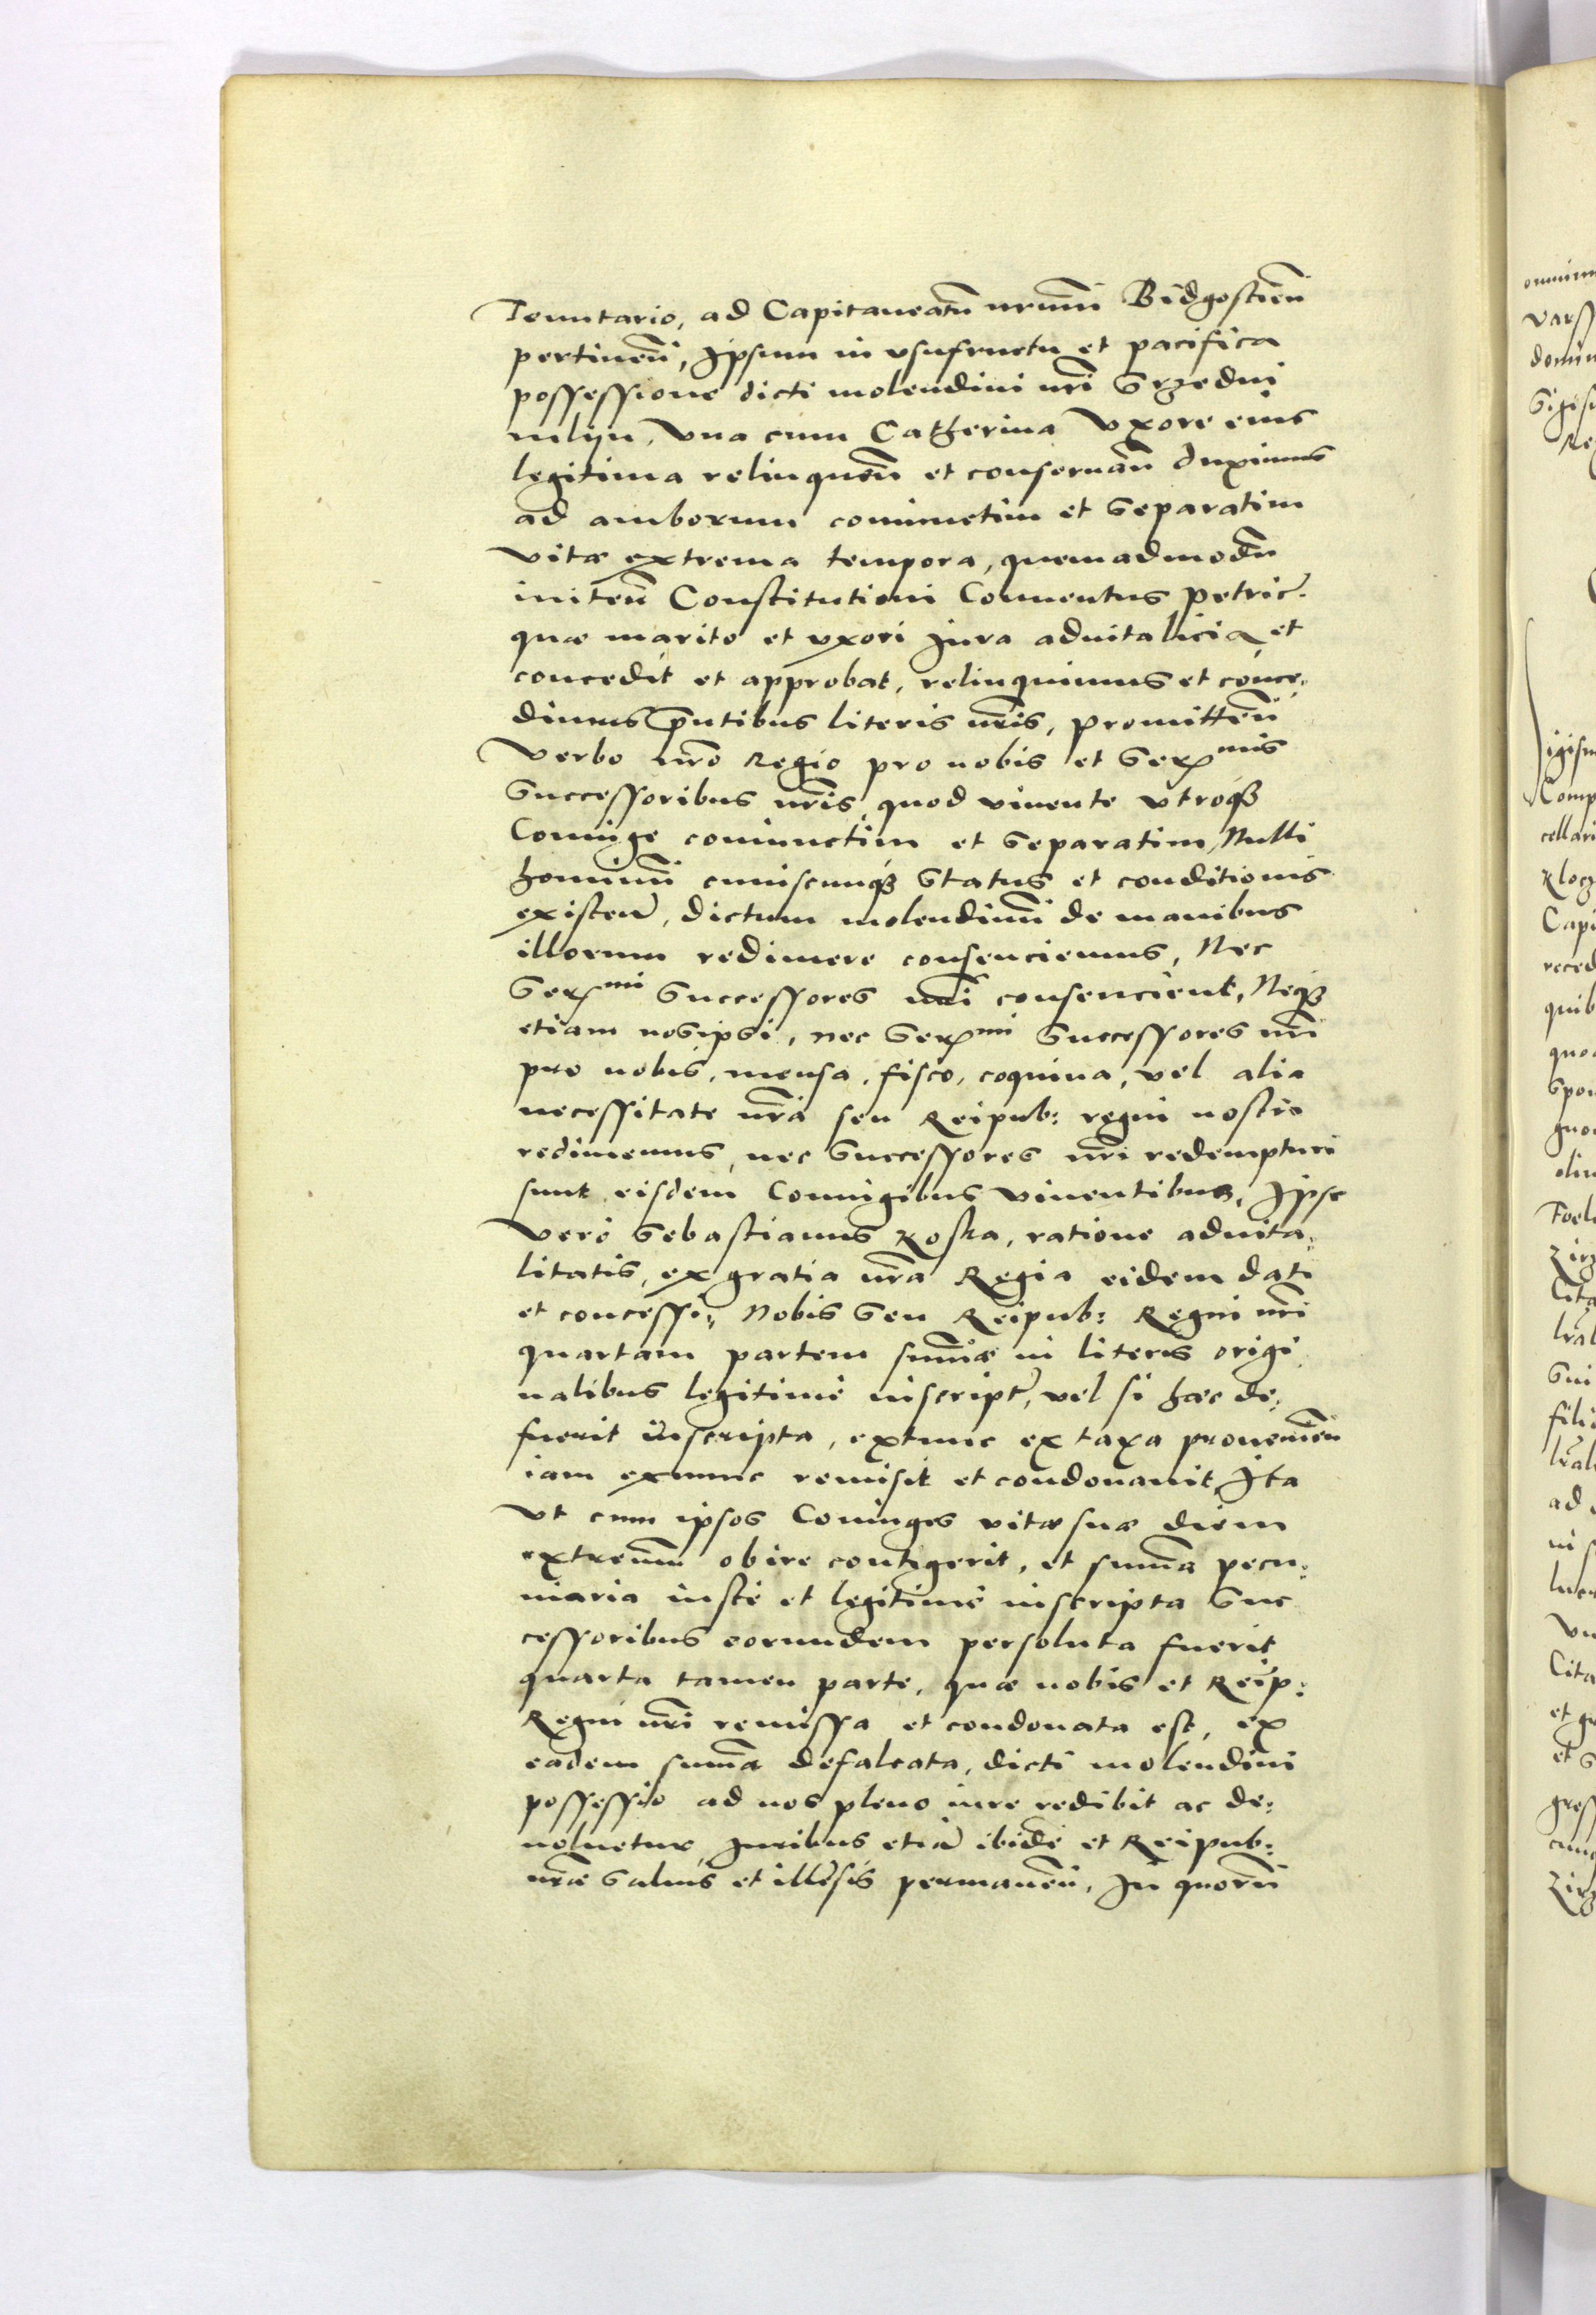 Tenutario, ad Capitaneatũ nrum̃ Bidgostien̄
pertinen̄, Ipsum in vsufructu et pacifica
possessione dicti molendini nr̃i Srzedni
mlyn, Vna cum Catherina Vxore eius
legitima relinquen̄ et conseruan̄ duximus
ad amborum coniunctim et Separatim
vitæ extrema tempora, quemadmodũ
initen̄ Constitutioni Conuentus petric.
quæ marito et vxori Jura aduitalicia et
concedit et approbat, relinquimus et conce,
dimus pñtibus literis nr̃is, promitten̄
Verbo nr̃o Regio pro nobis et Ser mis
Successoribus nr̃is, quod viuente vtroq3
Coniuge coniunctim et Separatim, Nulli
hominũ cuiuscunq3 Status et conditionis
existen̄, dictum molendinũ de manibus
illorum redimere consenciemus, Nec
Ser mi Successores nr̃i consencient, Neq3
etiam nosipsi, nec Ser mi Successores nr̃i
pro nobis, mensa, fisco, coquina, vel alia
necessitate nr̃a seu Reipub: regni nostri
redimemus, nec Successores nr̃i redempturi
sunt, eisdem Coniugibus viuentibus, Ipse
vero Sebastianus Koska, ratione aduita:
litatis, ex gratia nr̃a Regia eidem dati
et concessi, Nobis Seu Reipub: Regni nr̃i
quartam partem sum̃æ in literis origi
nalibus legitimè inscript, vel si hæc de,
fuerit inscripta, extunc ex taxa prouenien̄
iam exnunc remisit et condonauit Ita
Vt cum ipsos Coniuges vitæ suæ diem
extremũ obire contigerit, et sum̃a pecu:
niaria iustè et legitimè inscripta Suc
cessoribus eorundem persoluta fuerit
quarta tamen parte, quæ nobis et Reip:
Regni nr̃i remissa et condonata est, ex
eadem sum̃a defalcata, dicti molendini
possessio ad nos pleno iure redibit ac de:
uoluetur, Juribus etiã ibidẽ et Reipub:
nr̃æ Saluis et illesis permanen̄, In quorũ